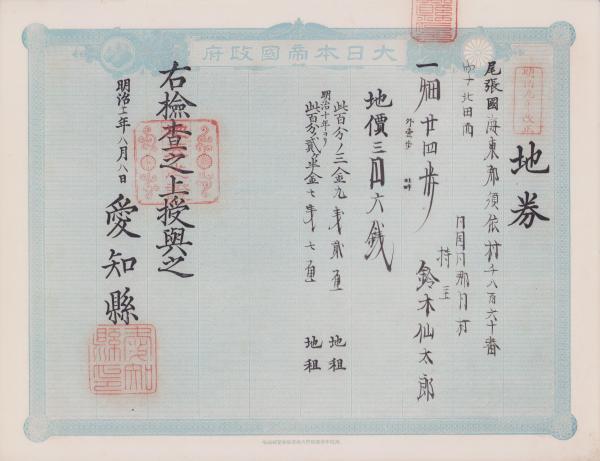 大日本帝國政府
明治九年改正
地券
尾張國海東郡須依村千八百六十番
字十北田面
一畑廿四歩
外畦畔
同國同郡同村
持主 鈴木仙太郎
地價三円六銭
此百分ノ三金九銭 地租
明治十年ヨリ
此百分ノ貳半金七銭七厘 地租
右檢査之上授與之
明治十二年八月八日
愛知縣
愛知縣印